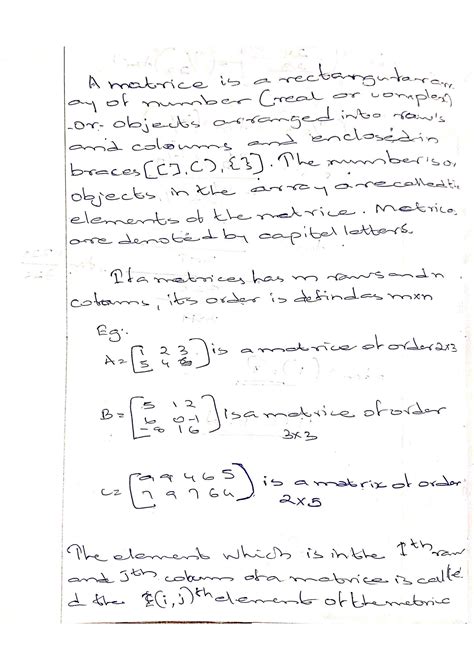 A matrice is a rectangular arr
ay of number (real or complex)
-or- objects arranged into raw's
and coloumns and enclosed in
braces [[ ], ( ), { }]. The number's or
objects in the array are called the
elements of the metrice. Metrice
are denoted by capital letters.
If a metrices has m raws and n
coloums, its order is defind as mxn
Eg:-
A = [1 2 3
5 4 6] is a matrice of order 2x3
B = [5 1 2
6 0 -1
-8 1 6] is a matrice of order
3x3
C = [9 9 4 6 5
7 9 7 6 4] is a matrix of order
2x5
The element which is in the I th raw
and J th coloum of a matrice is calle
d the (i,j)th element of the metric